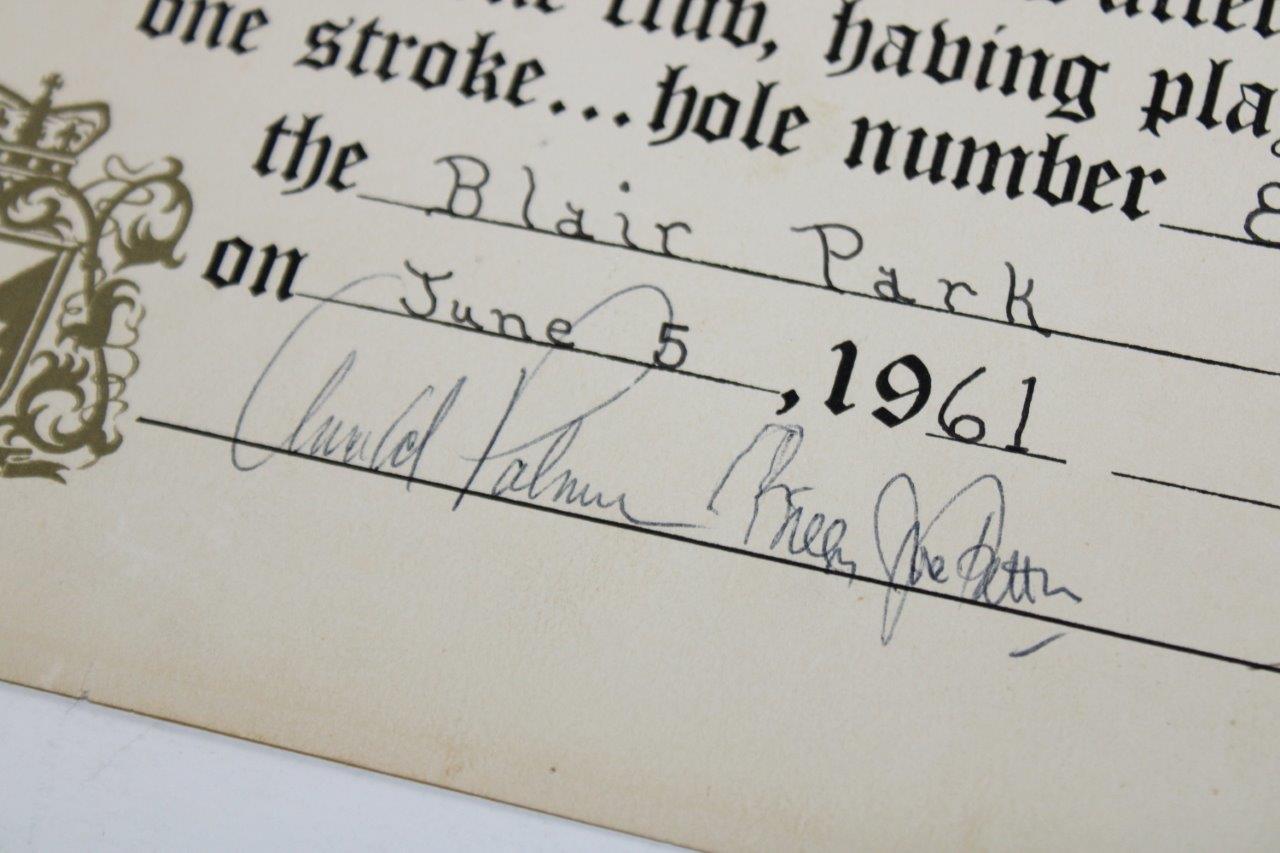 one stroke...hole number
the Blair Park
on June 5, 1961
Arnold Palmer Billy Joe Patton
club, having